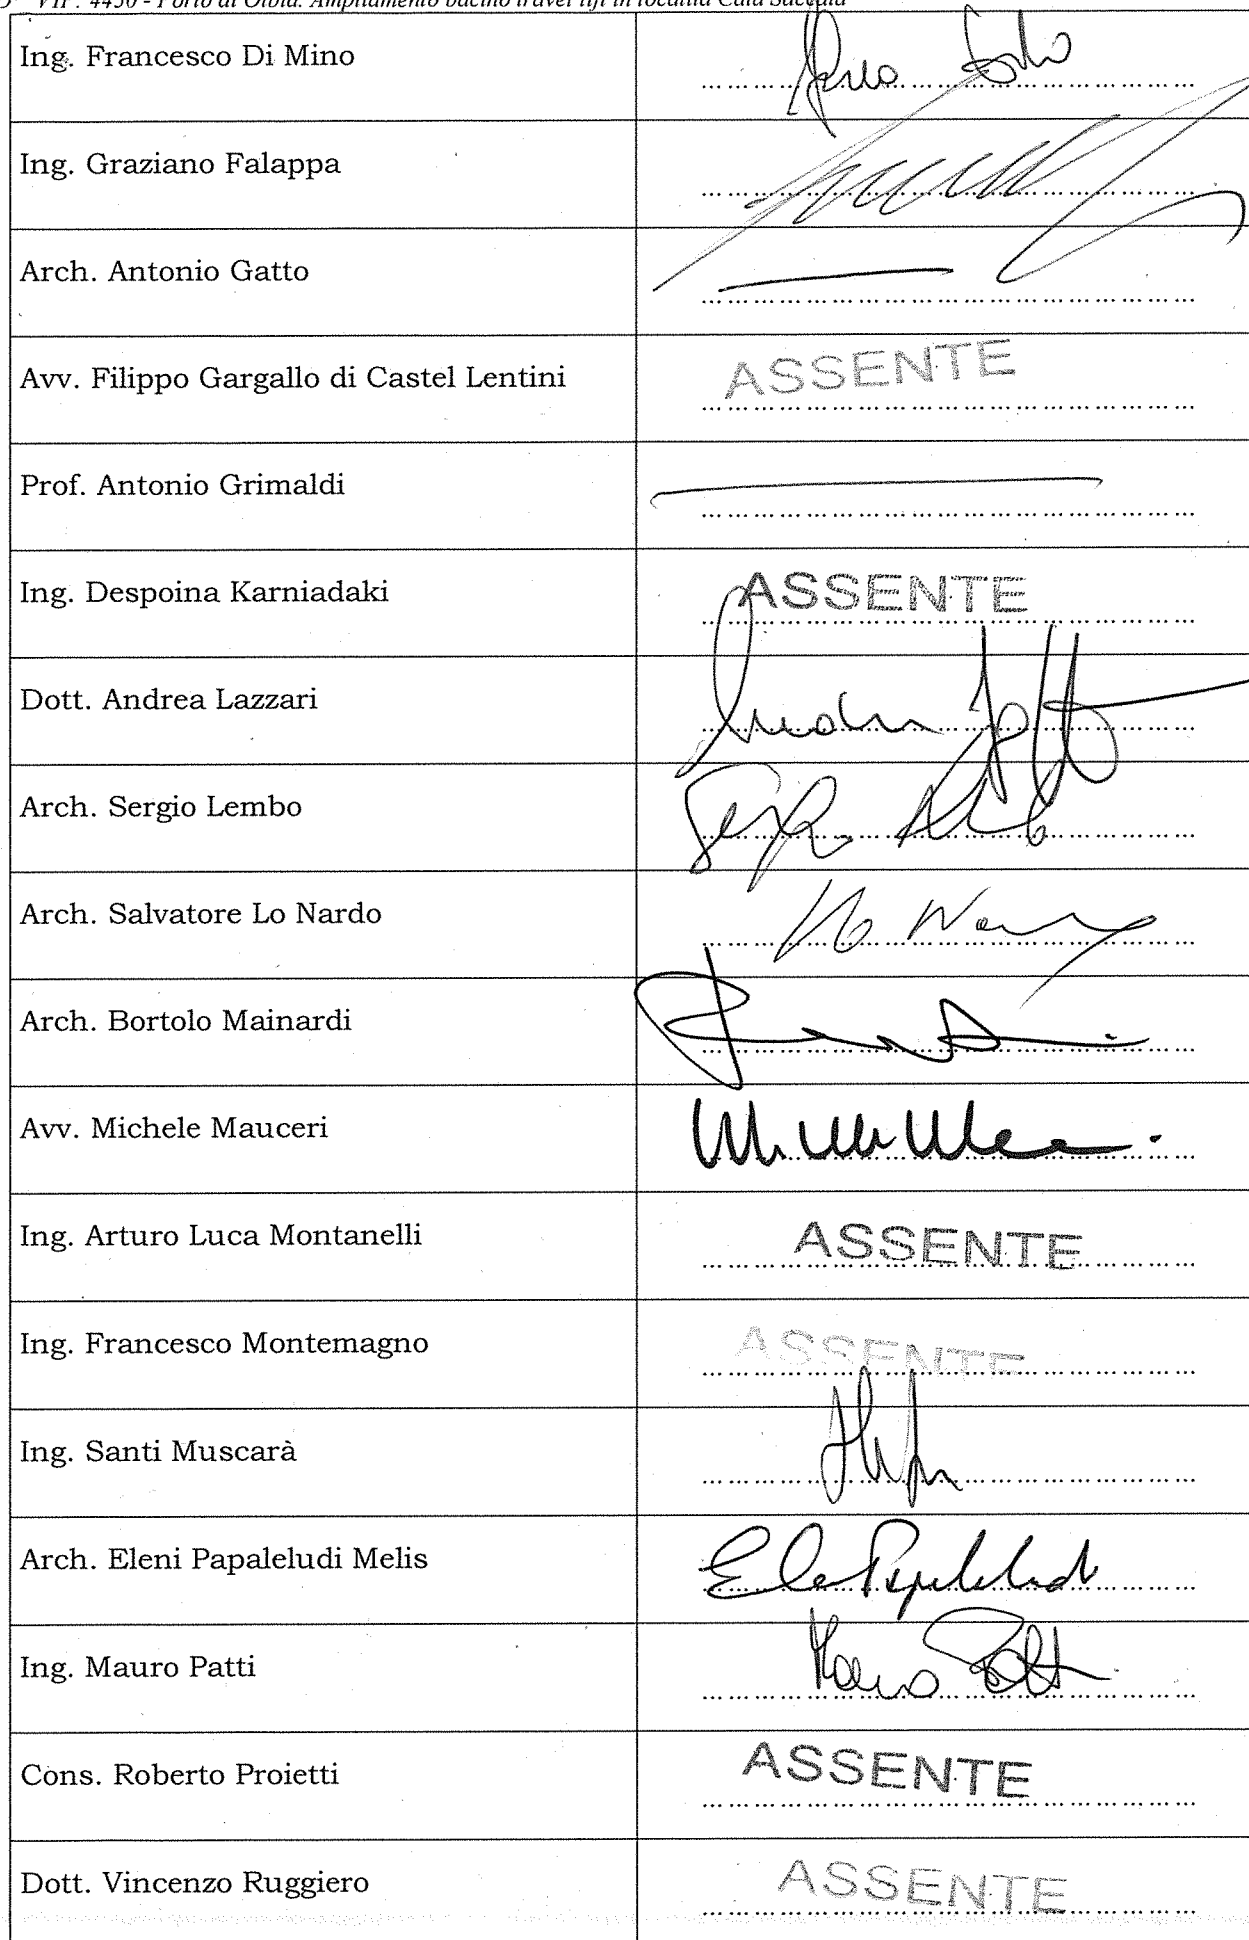 VIP: 4450 - Porto di Olbia. Ampliamento bacino travel lift in località Cala Saccaia
Ing. Francesco Di Mino
Ing. Graziano Falappa
Arch. Antonio Gatto
Avv. Filippo Gargallo di Castel Lentini ASSENTE
Prof. Antonio Grimaldi
Ing. Despoina Karniadaki ASSENTE
Dott. Andrea Lazzari
Arch. Sergio Lembo
Arch. Salvatore Lo Nardo
Arch. Bortolo Mainardi
Avv. Michele Mauceri
Ing. Arturo Luca Montanelli ASSENTE
Ing. Francesco Montemagno ASSENTE
Ing. Santi Muscarà
Arch. Eleni Papaleludi Melis
Ing. Mauro Patti
Cons. Roberto Proietti ASSENTE
Dott. Vincenzo Ruggiero ASSENTE